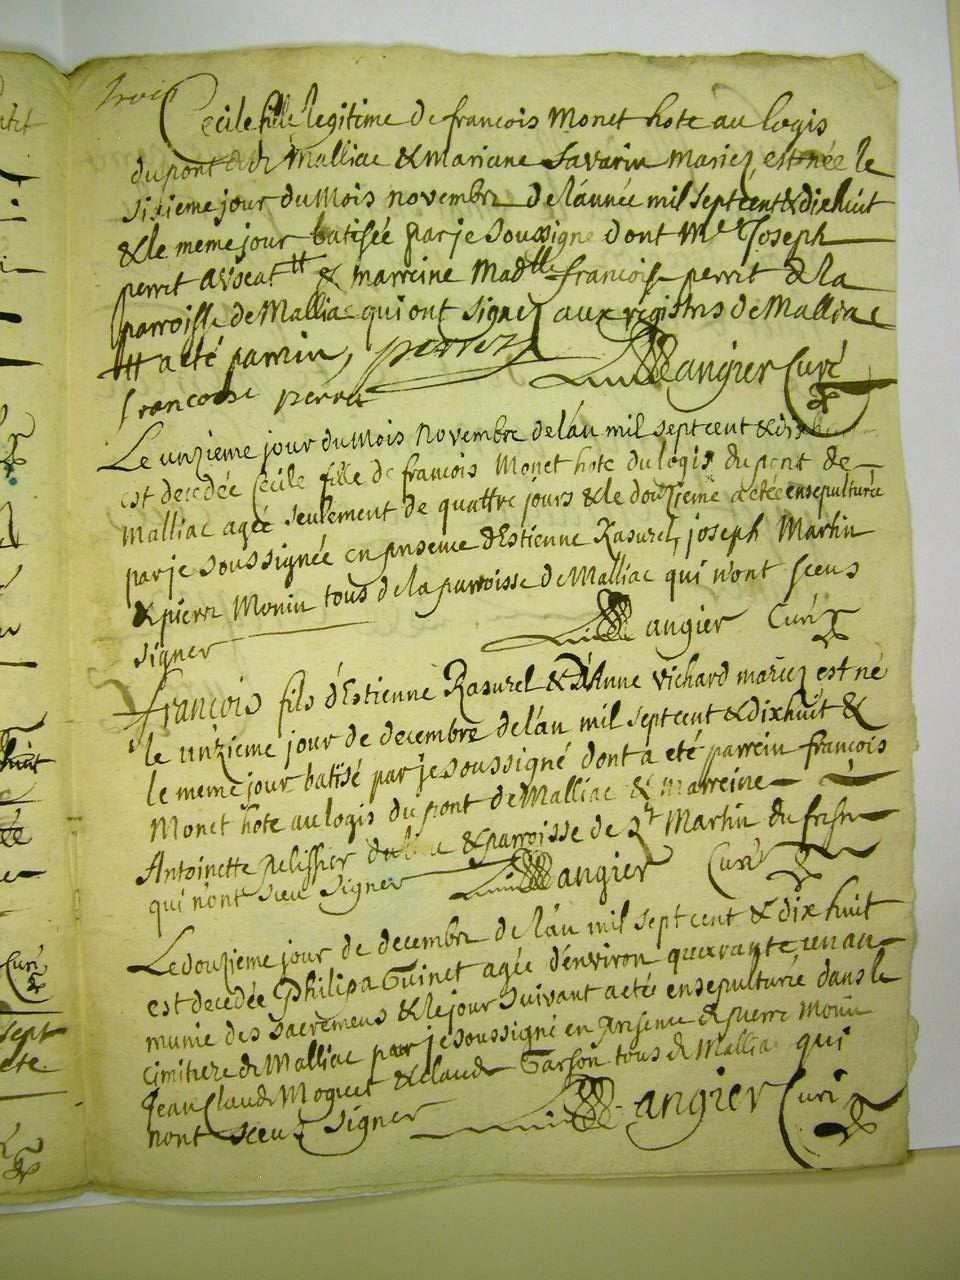 trois
Cecile fille legitime de francois Monet hote au logis
du pont de Malliac & mariane Savarin mariez, est née le
sisieme jour du Mois novembre de l'année mil sept cent & dix huit
& le meme jour batisée par je soussigné dont Mr Joseph
perret avocat ## & marreine Madlle francoise perret de la
parroisse de Malliac qui ont signez aux registres de Malliac
## a eté parrin, perret
angier Curé
francoise perret
Le unzieme jour du Mois Novembre de l'an mil sept cent & dix
est decedée Cecile fille de francois Monet hote du logis du pont de
Malliac agée seulement de quattre jours & le douzieme a eté ensepulturée
par je soussignée en presence d'Estienne Rasurel, joseph Martin
& pierre Monin tous de la parroisse de Malliac qui n'ont sceus
signer
angier Curé
françois fils d'Estienne Rasurel & d'Anne Vichard mariez est né
le unzieme jour de decembre de l'an mil sept cent & dixhuit &
le meme jour batisé par je soussigné dont a eté parrein francois
Monet hote au logis du pont de Malliac & marreine
Antoinette Pelissier & parroisse de St Martin du fresne
qui n'ont sceu signer angier Curé
Le douzieme jour de decembre de l'an mil sept cent & dix huit
est decedée Philipa Guinet agée d'environ quarante un an
munie des sacremens & le jour suivant a eté ensepulturée dans le
cimitiere de Malliac par je soussigné en presence de pierre Monin
Jean Claude Moguet & claude Garson tous de Malliac qui
nont sceus signer angier Curé